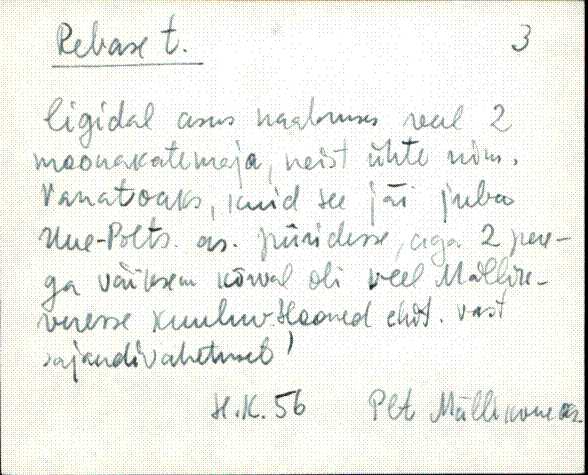 Rebase t. 3
ligidal asus naabruses veel 2
moonakatemaja, neist ühte nim.
Vanatoaks, kuid see jäi juba
Uue-Põlts. as. piiridesse, aga 2 pere-
ga väiksem kõrval oli veel Mällik-
veresse kuuluv. Hooned ehit. vast
sajandivahetusel
H.K. 56 Plt